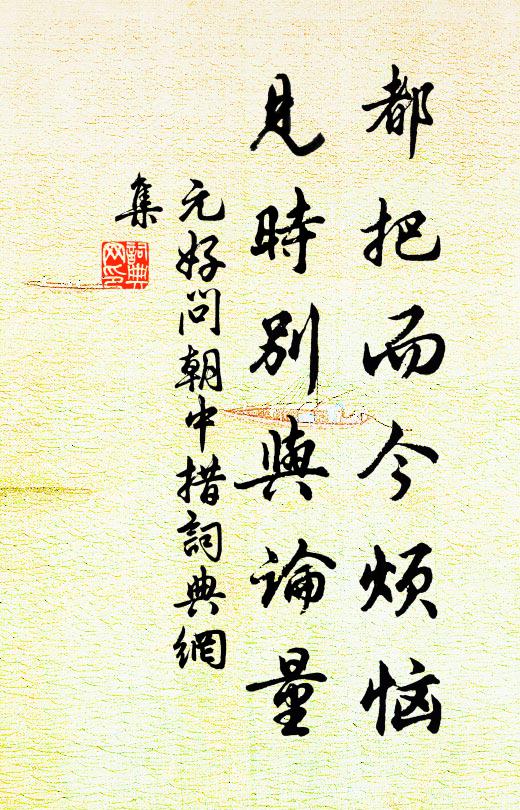 都把而今烦恼
見時別與論量
元好问朝中措詞典網
集
詞典
网印